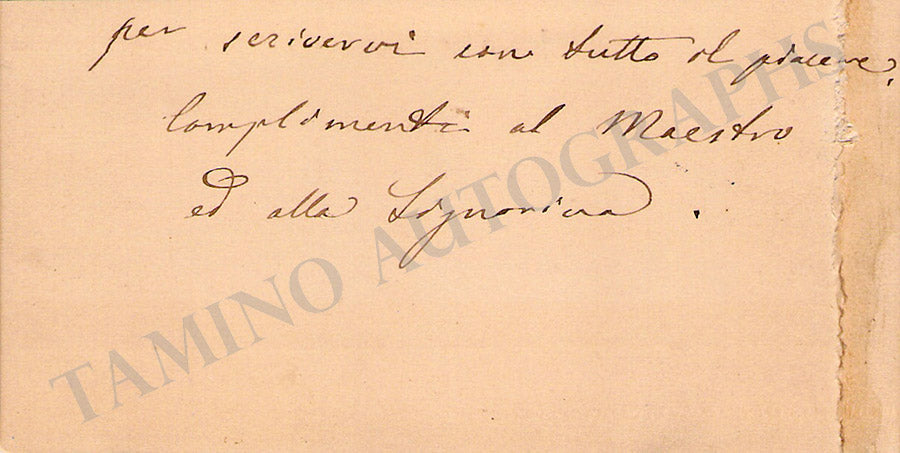 per scrivervi con tutto il piacere.
Complimenti al Maestro
ed alla Signorina.
TAMINO AUTOGRAPHS